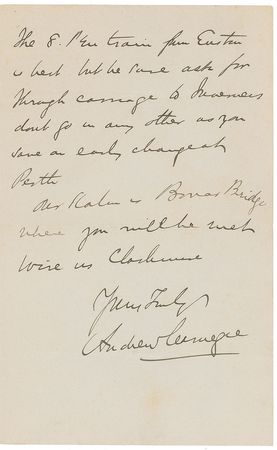 The 8. PM train from Euston
is best but be sure ask for
through carriage to Inverness
dont go in any other as you
save an early change at
Perth
Our Station is Bonar Bridge
where you will be met
Wire us Clashmore
Yours Truly
Andrew Carnegie